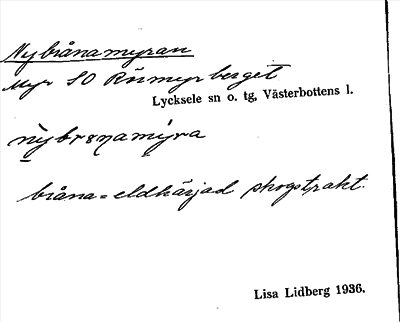 Nybrånamyran
Myr SO Rörmyrberget
Lycksele sn o. tg, Västerbottens l.
nybrånamýra
bråna = eldhärjad skogstrakt.
Lisa Lidberg 1936.